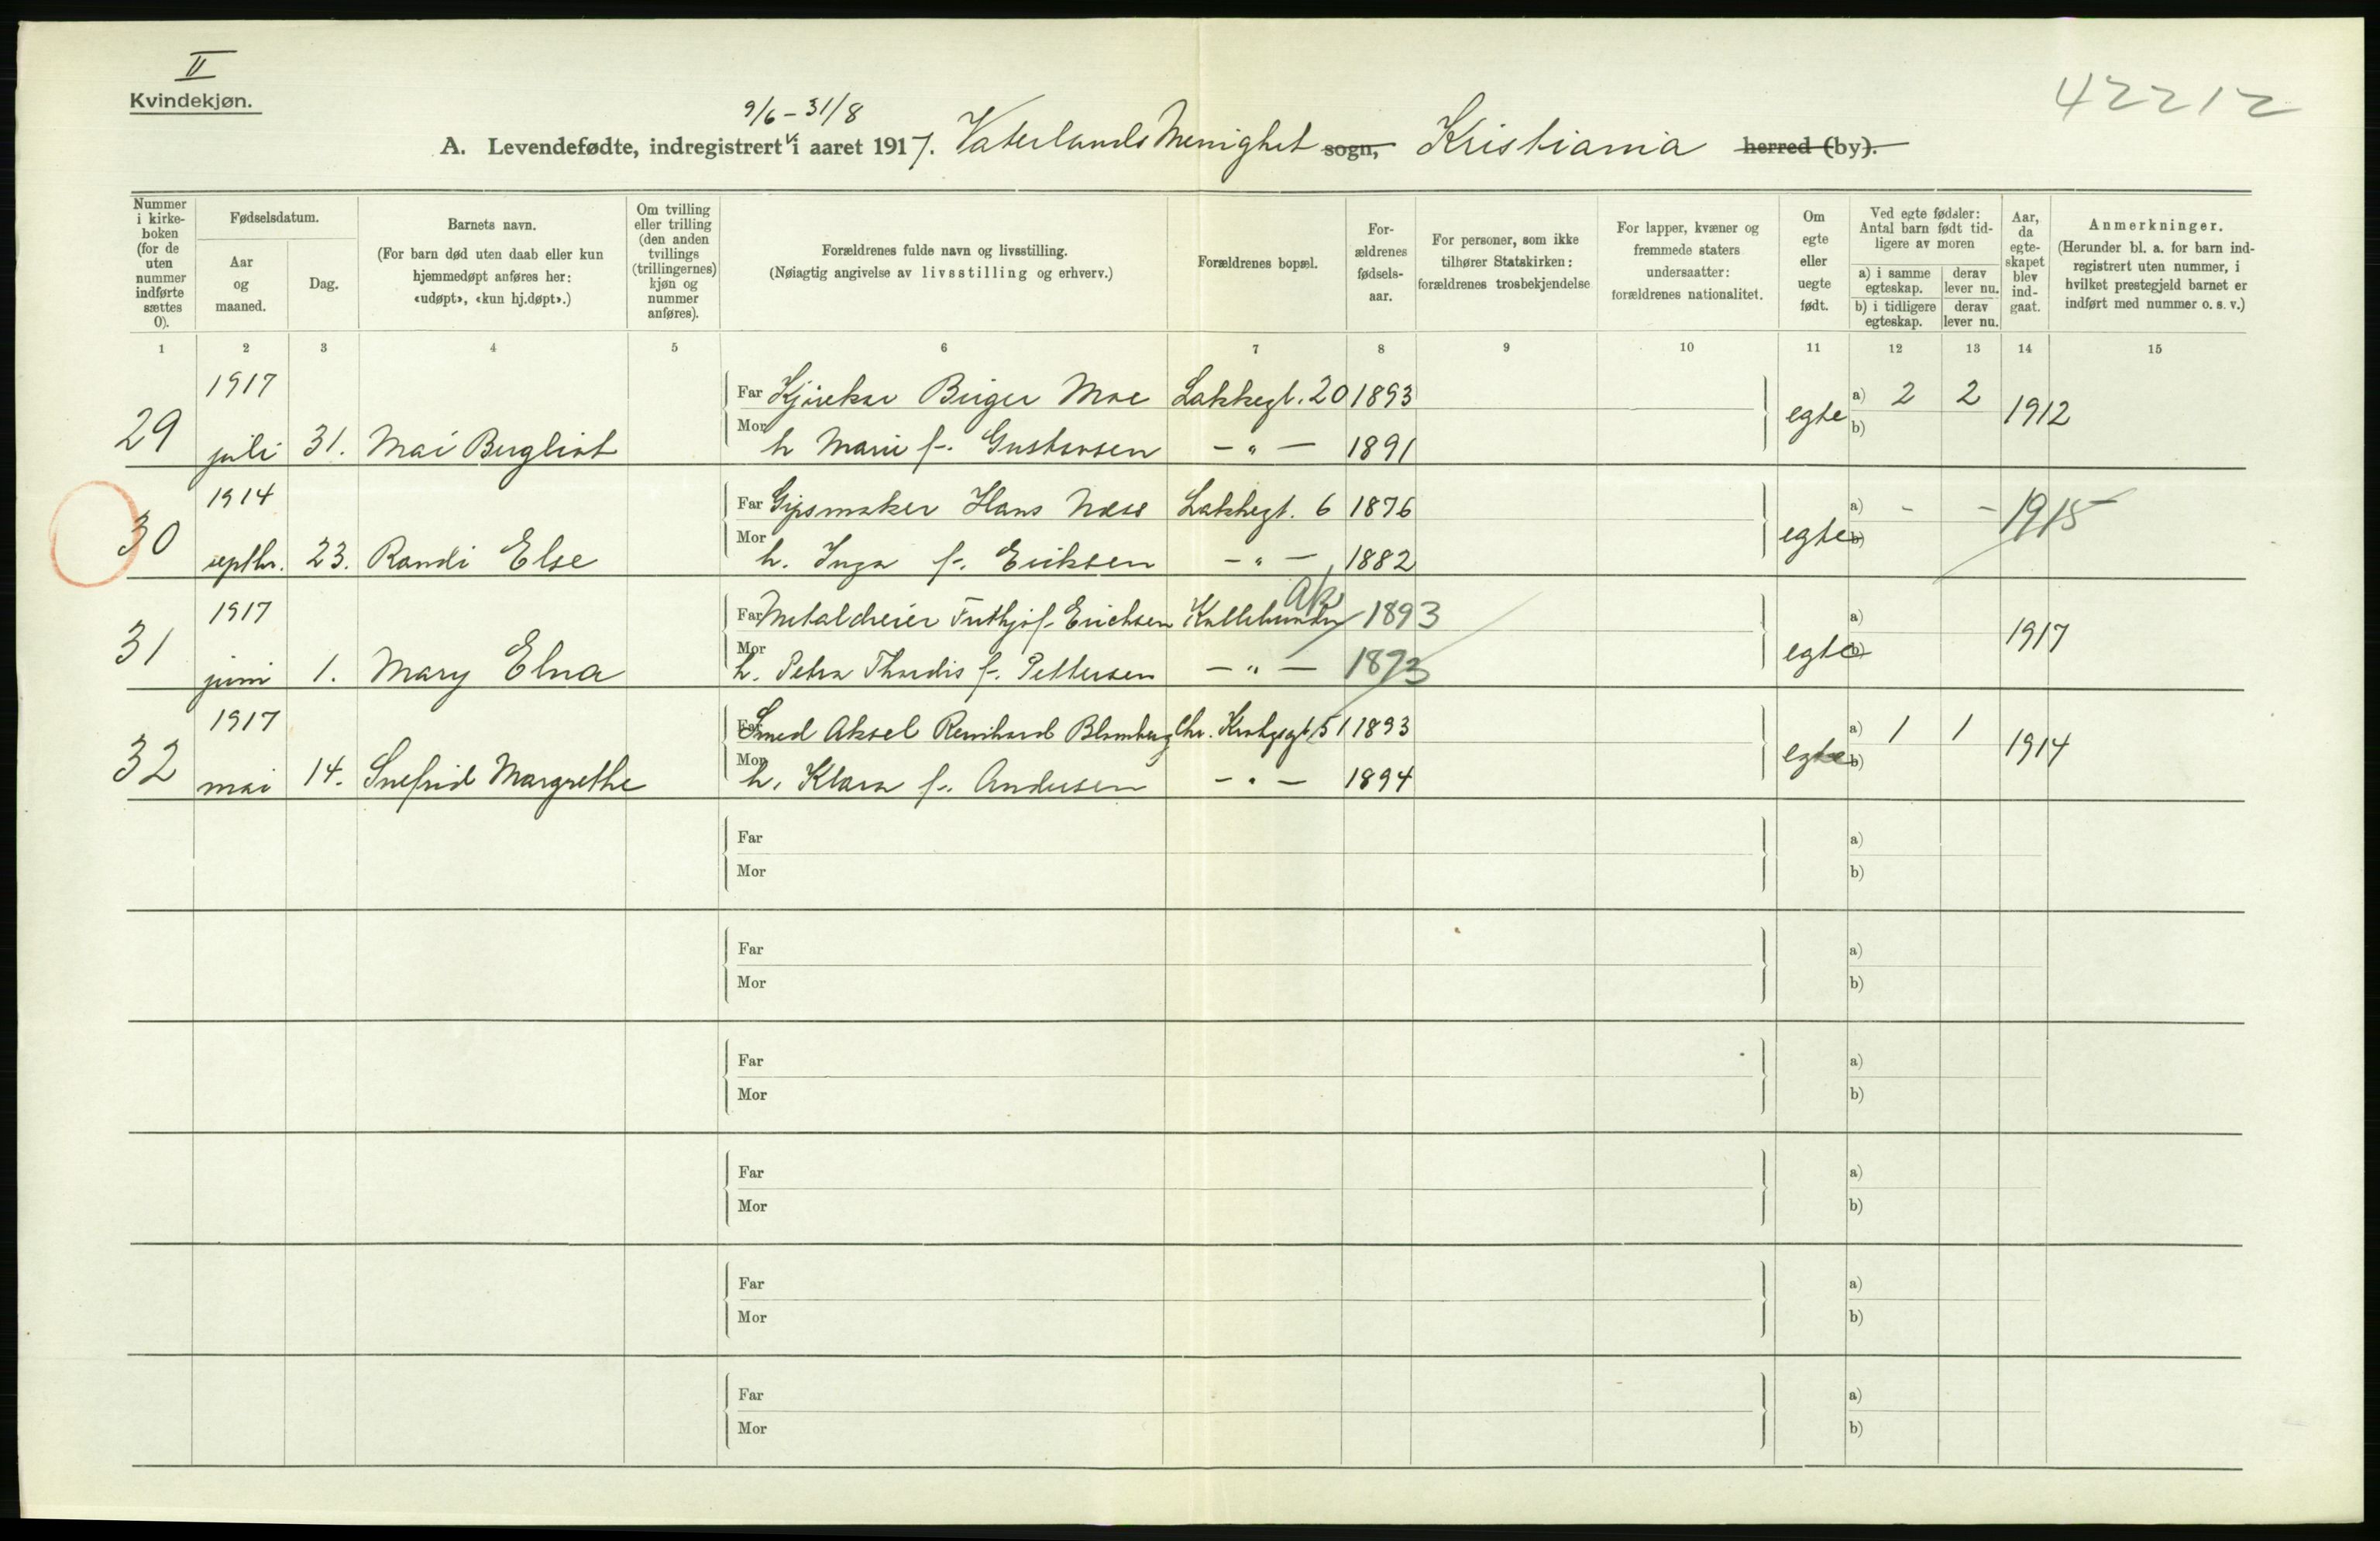 II
Kvindekjøn.
42212
9/6 – 31/8
A. Levendefødte, indregistrert i aaret 1917. Vaterlands Menighet sogn, Kristiania herred (by).
Nummer i kirkeboken (for de uten nummer indførte sættes 0).
Fødselsdatum.
Aar og maaned.
Dag.
Barnets navn.
(For barn død uten daab eller kun hjemmedøpt anføres her: «udøpt», «kun hj.døpt».)
Om tvilling eller trilling (den anden tvillings (trillingernes) kjøn og nummer anføres).
Forældrenes fulde navn og livsstilling.
(Nøiagtig angivelse av livsstilling og erhverv.)
Forældrenes bopæl.
Forældrenes fødselsaar.
For personer, som ikke tilhører Statskirken: forældrenes trosbekjendelse
For lapper, kvæner og fremmede staters undersaatter: forældrenes nationalitet.
Om egte eller uegte født.
Ved egte fødsler: Antal barn født tidligere av moren
a) i samme egteskap. derav lever nu.
b) i tidligere egteskap. derav lever nu.
Aar, da egteskapet blev indgaat.
Anmerkninger.
(Herunder bl. a. for barn indregistrert uten nummer, i hvilket prestegjeld barnet er indført med nummer o. s. v.)
1 2 3 4 5 6 7 8 9 10 11 12 13 14 15
1917 Far Kjørekar Birger Moe Lakkegt. 20 1893 a) 2 2
29 juli 31. Mai Bergliot Mor h Marie f. Gustavsen – " – 1891 egte b) 1912
1914 Far Gipsmaker Hans Næss Lakkegt. 6 1876 a) - - 1915
30 septbr. 23. Randi Else Mor h. Inga f. Eriksen – " – 1882 egte b)
1917 Far Metaldreier Frithjof Erichsen Ak 1893 a)
31 juni 1. Mary Elna Mor h. Petra Thordis f. Pettersen – " – 1893 egte b) 1917
1917 Far Smed Aksel Reinhard Blomberg Chr. Krohgsgt. 51 1893 a) 1 1
32 mai 14. Snefrid Margrethe Mor h. Klara f. Andersen – " – 1894 egte b) 1914
Far a)
Mor b)
Far a)
Mor b)
Far a)
Mor b)
Far a)
Mor b)
Far a)
Mor b)
Far a)
Mor b)